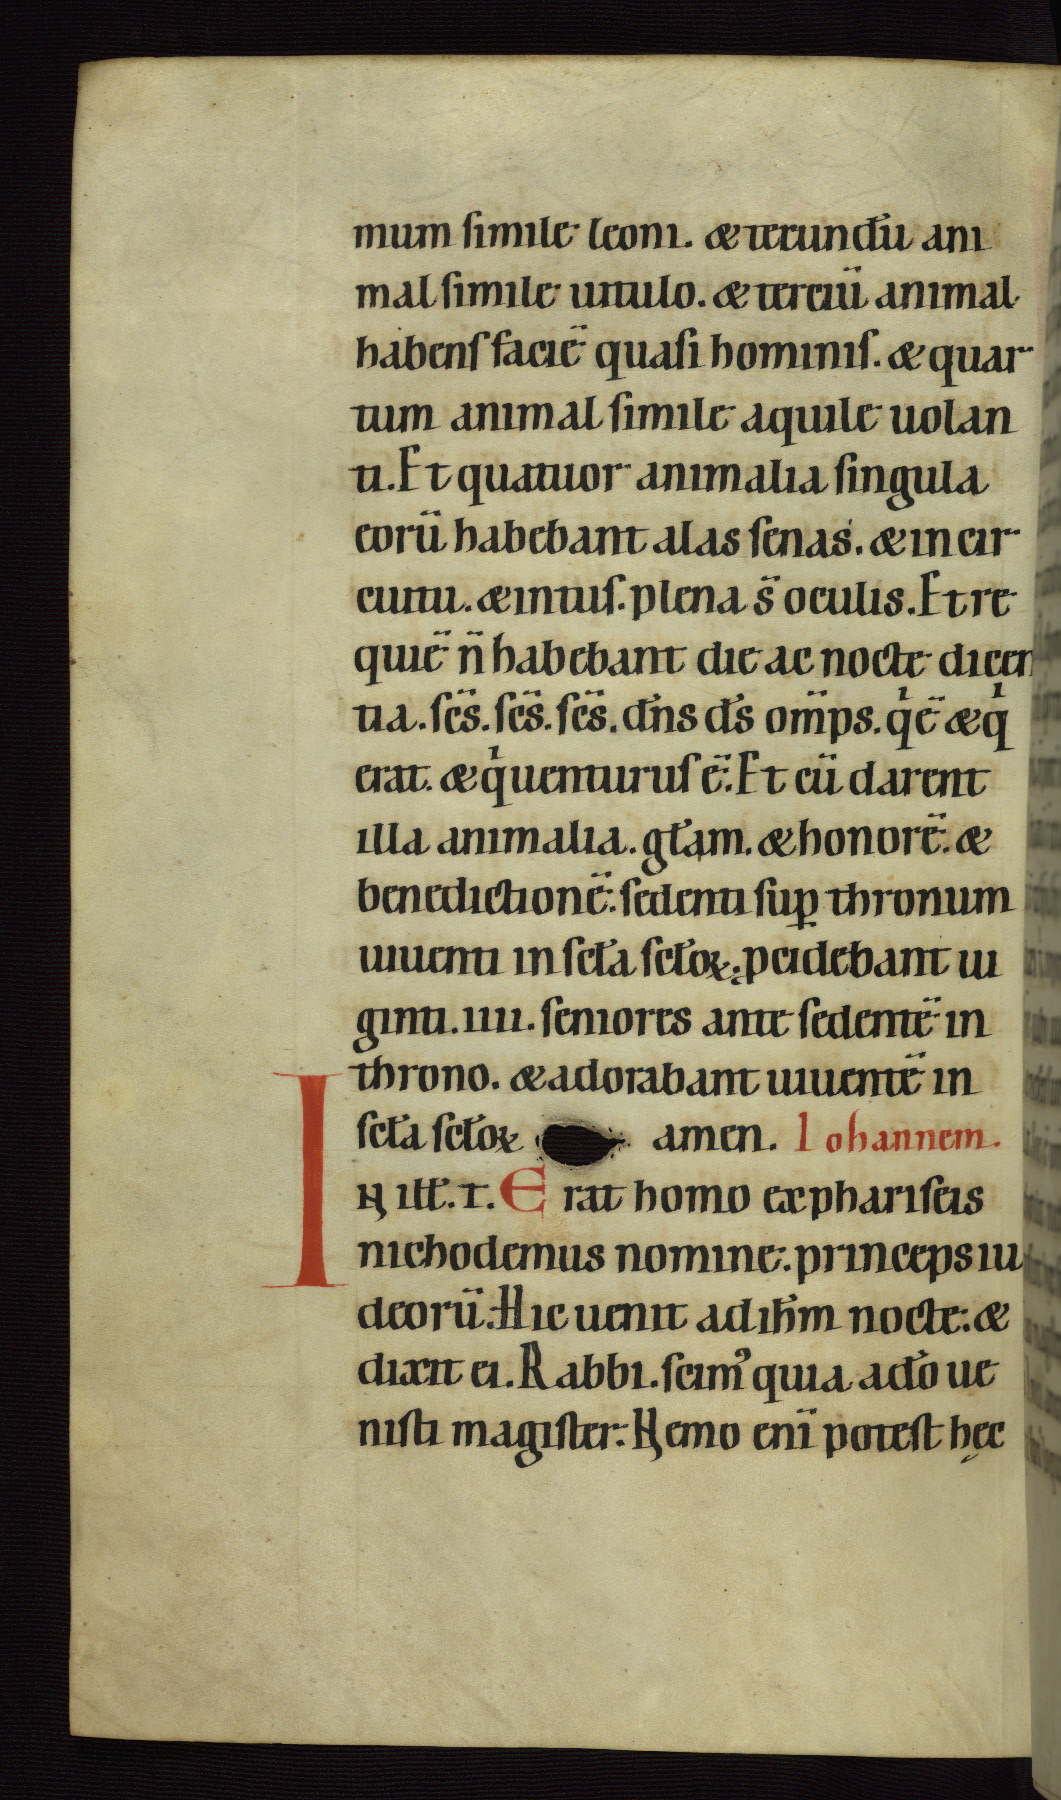 mum simile leoni. & secundu̅ ani
mal simile uitulo. & terciu̅ animal
habens facie̅ quasi hominis. & quar
tum animal simile aquile uolan
ti. Et quatuor animalia singula
eoru̅ habebant alas senas. & in cir
cuitu. & intus. plena s̅ oculis. Et re
quie̅ n̅ habebant die ac nocte dicen
tia. sc̅s. sc̅s. sc̅s. dn̅s ds̅ om̅ps. qͥ e̅ & qͥ
erat. & qͥ uenturus e̅. Et cu̅ darent
illa animalia. gl̅am. & honore̅. &
benedictione̅. sedenti suꝑ thronum
uiuenti in scl̅a scl̅oꝝ. pcidebant ui
ginti. iiii. seniores ante sedente̅ in
throno. & adorabant uiuente̅ in
scl̅a scl̅oꝝ amen. Iohannem.
IN ill̅. t. Erat homo ex phariseis
nichodemus nomine. princeps iu
deoru̅. Hic uenit ad ih̅m nocte. &
dixit ei. Rabbi. scimꝰ quia a do̅ ue
nisti magister. Nemo eni̅ potest hęc